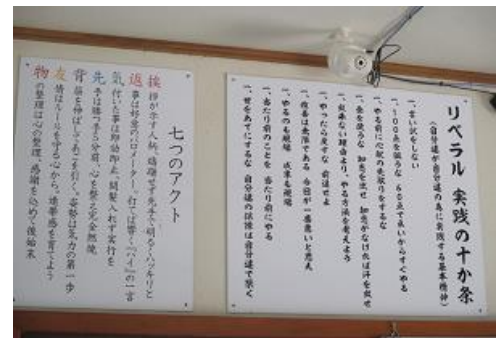 リベラル 実践の十か条
(自分達が自分達の為に実践する基本精神)
一、言い訳をしない
一、100点を狙うな 60点で良いからすぐやる
一、やる前に心配の先取りをするな
一、金を使うな 知恵を出せ 知恵がなければ汗を出せ
一、出来ない理由より、やる方法を考えよう
一、やったら戻すな 前進せよ
一、改善は無限である 今日が一番悪いと思え
一、やるのも現場 成果も現場
一、当たり前のことを 当たり前にやる
一、せをあてにするな 自分達の城は自分達で築く
七つのアクト
挨拶が示す人柄、躊躇せず先手で明るくハッキリと
返事は好意のバロメーター、打てば響く「ハイ」の一言
気付いた事は即即止、間髪入れず実行を
先手は勝つ手 五分前、心を整え完全燃焼
背筋を伸ばしてあごを引く、姿勢は気力の第一歩
友情はルールを守る心から、連帯感を育てよう
物の整理は心の整理、感謝を込めて後始末